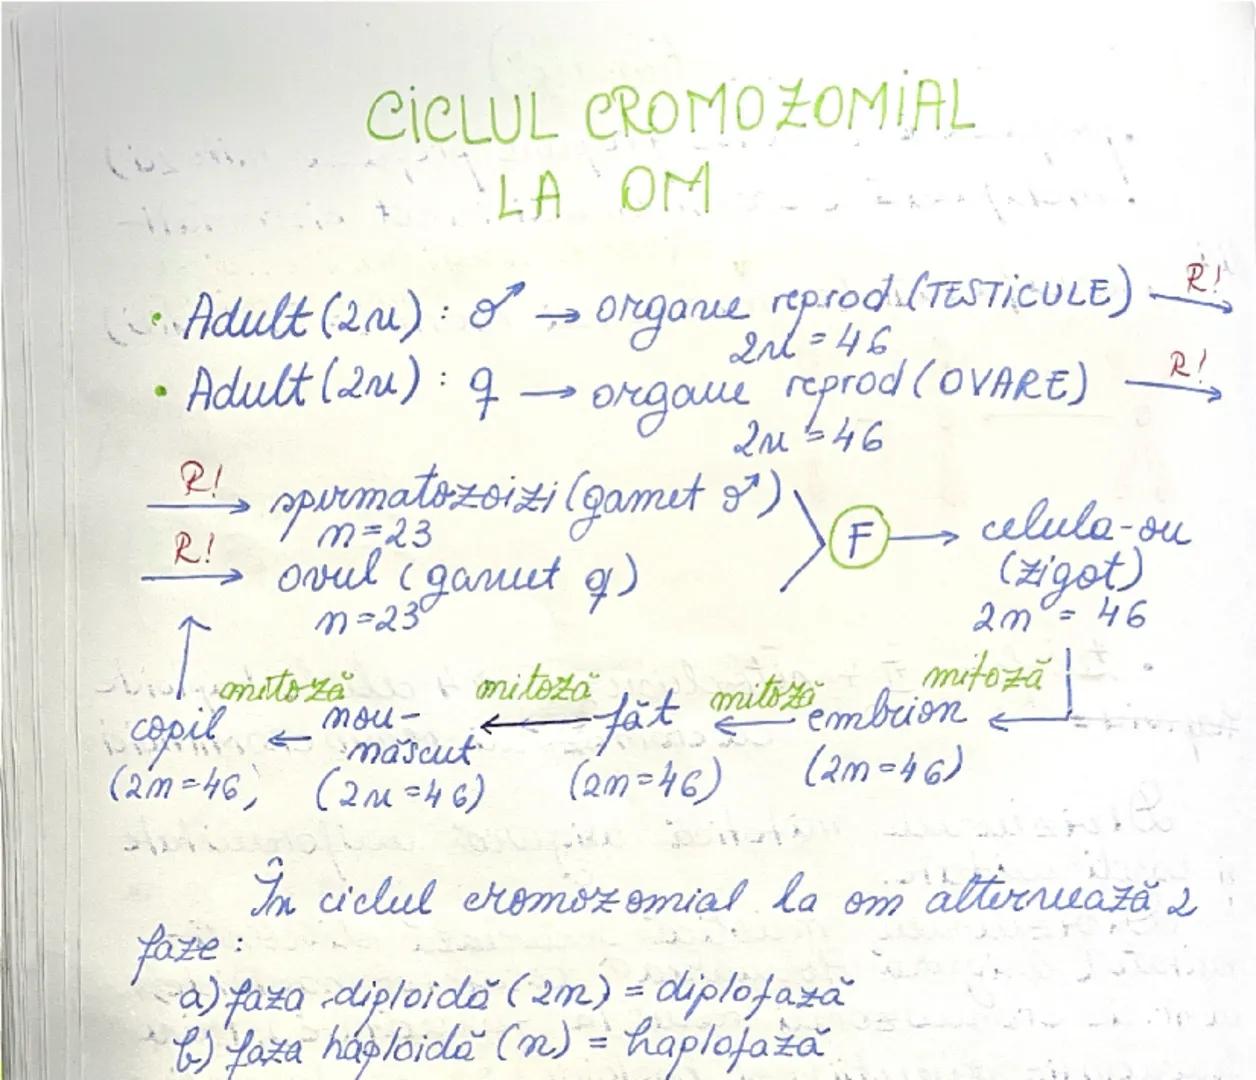 CICLUL CROMOZOMIAL
LA OM
• Adult (2n) : ♂ → organe reprod. (TESTICULE) R! →
2n = 46
• Adult (2n) : ♀ → organe reprod (OVARE) R! →
2n = 46
R! → spermatozoizi (gamet ♂)
n=23
R! → ovul (gamet ♀)
n=23
F → celula-ou
(zigot)
2n = 46
mitoză mitoză mitoză mitoză
copil ← nou-născut ← făt ← embrion ←
(2n=46) (2n=46) (2n=46) (2n=46)
În ciclul cromozomial la om alternează 2
faze :
a) faza diploidă (2n) = diplofază
b) faza haploidă (n) = haplofază